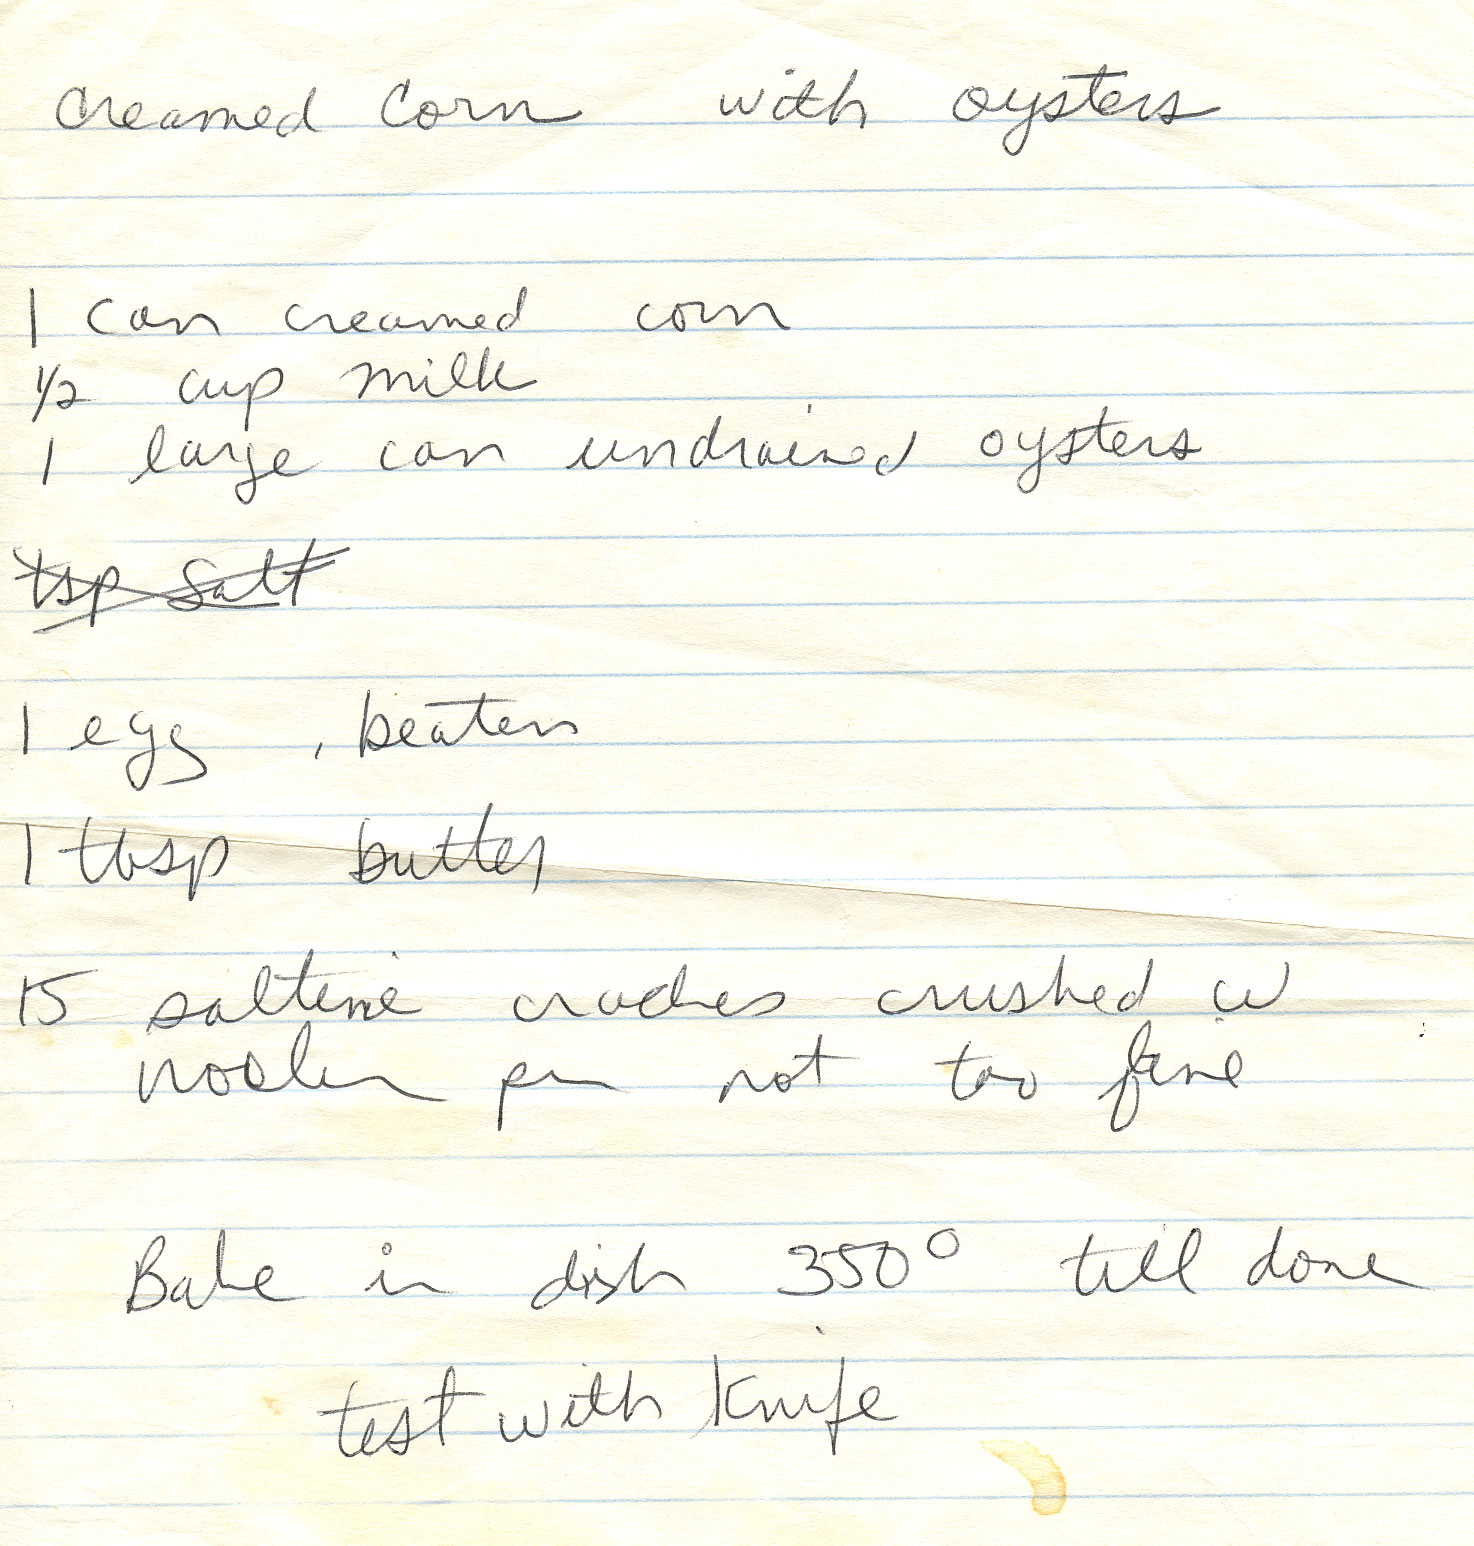 Creamed Corn with oysters
1 can creamed corn
1/2 cup milk
1 large can undrained oysters
tsp salt
1 egg, beaten
1 tbsp butter
15 saltine crackers crushed w
pin not too fine
Bake in dish 350° till done
test with Knife